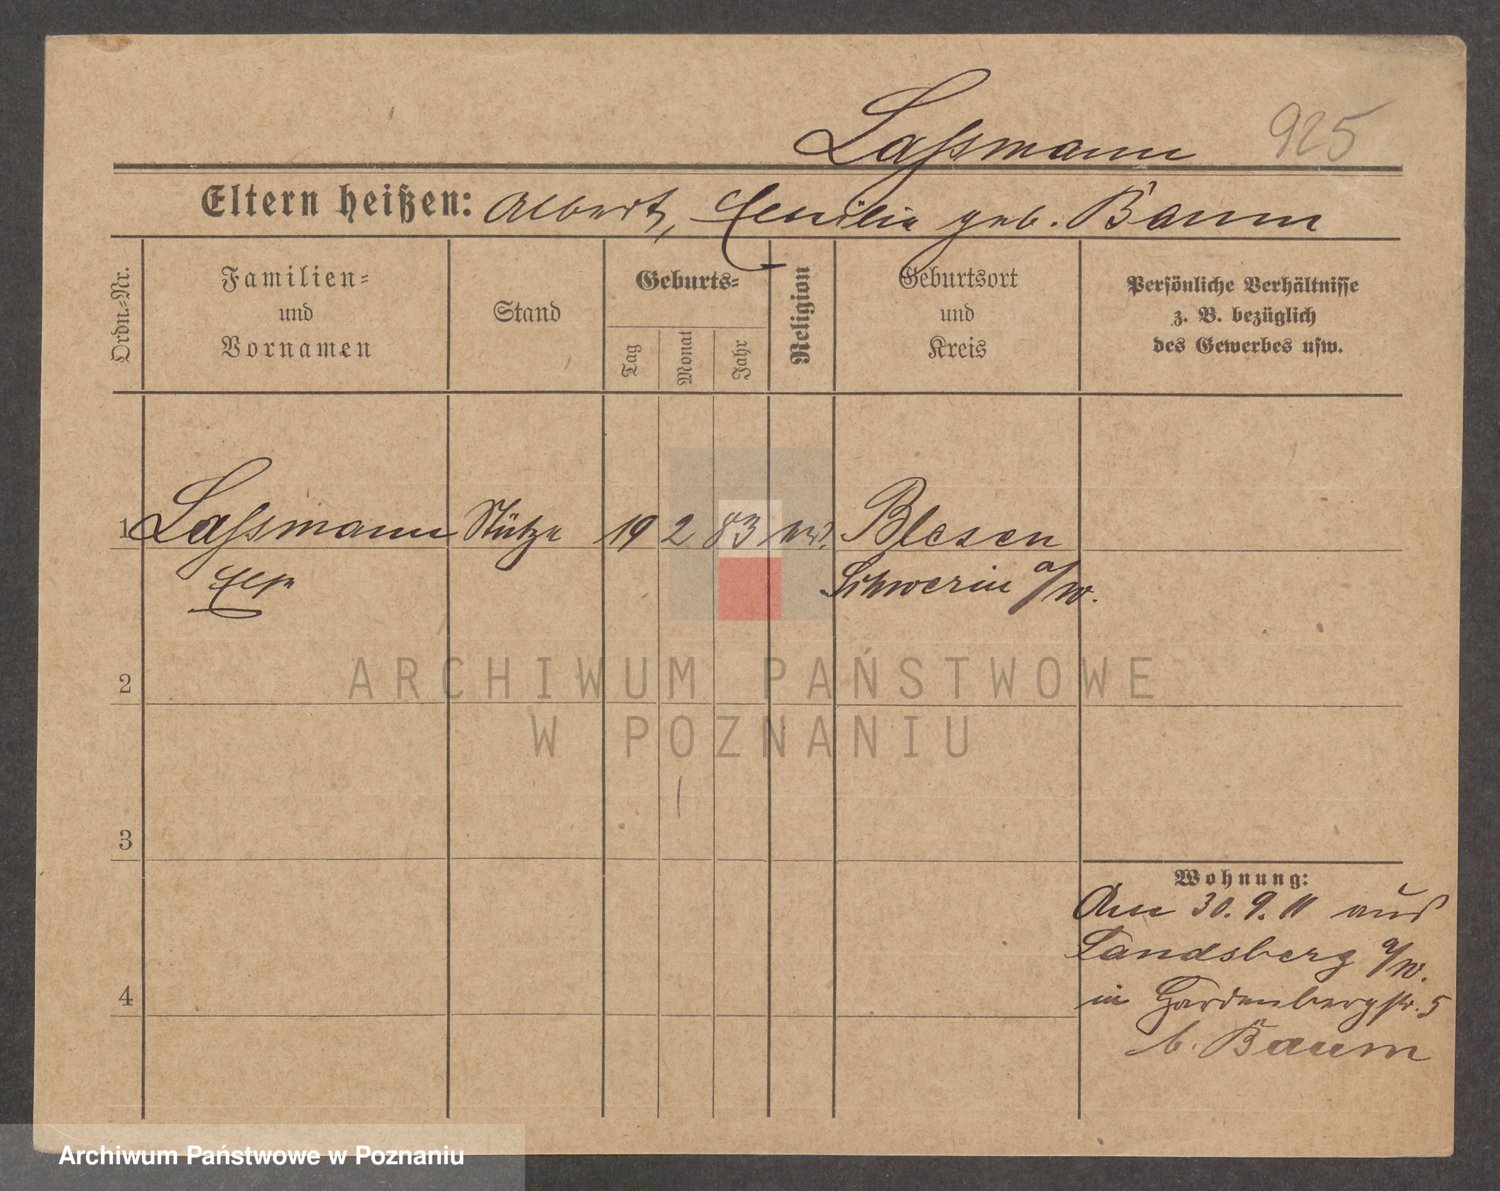 Laßmann 925
Eltern heißen: Albert, Cecilie geb. Baum
Ordn.-Nr.
Familien-
und
Vornamen
Stand
Geburts-
Tag
Monat
Jahr
Religion
Geburtsort
und
Kreis
Persönliche Verhältnisse
z. B. bezüglich
des Gewerbes usw.
1 Laßmann Stütze 19 2 83 Blesen
Else Schwerin a/W.
ARCHIWUM PAŃSTWOWE
2
W POZNANIU
3
Wohnung:
Am 30. 9. 11 aus
Landsberg a/W.
4 in Hardenbergstr. 5
b. Baum
Archiwum Państwowe w Poznaniu